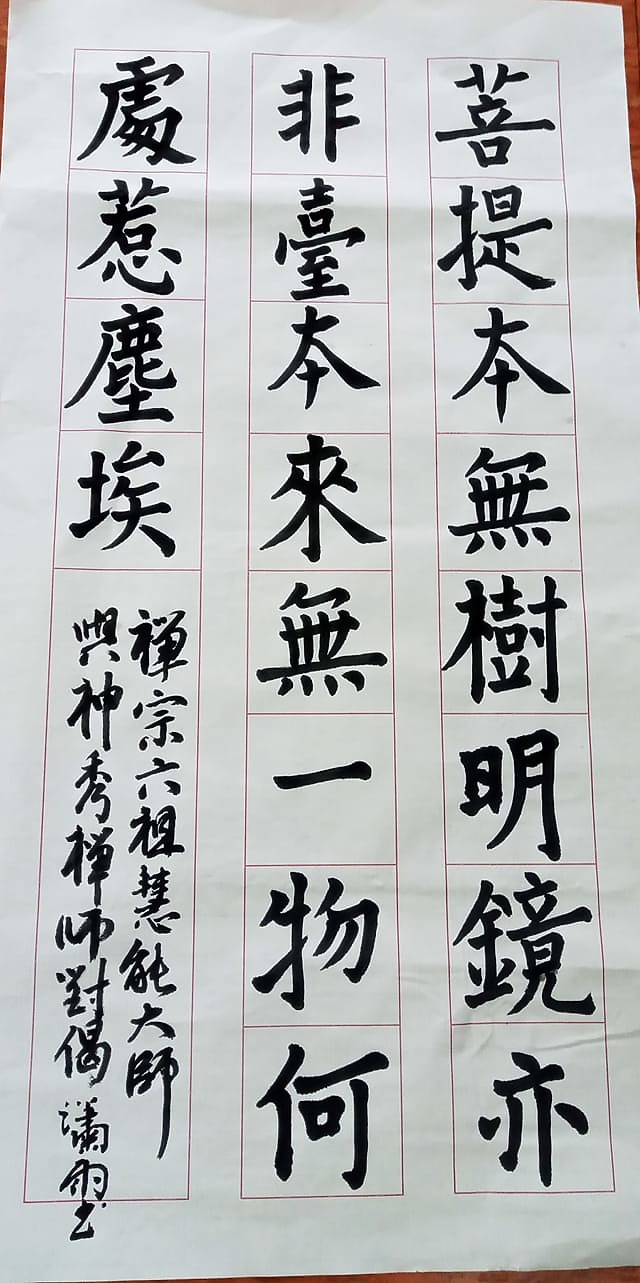 菩提本無樹明鏡亦
非臺本來無一物何
處惹塵埃
禅宗六祖慧能大師
與神秀禅师對偈